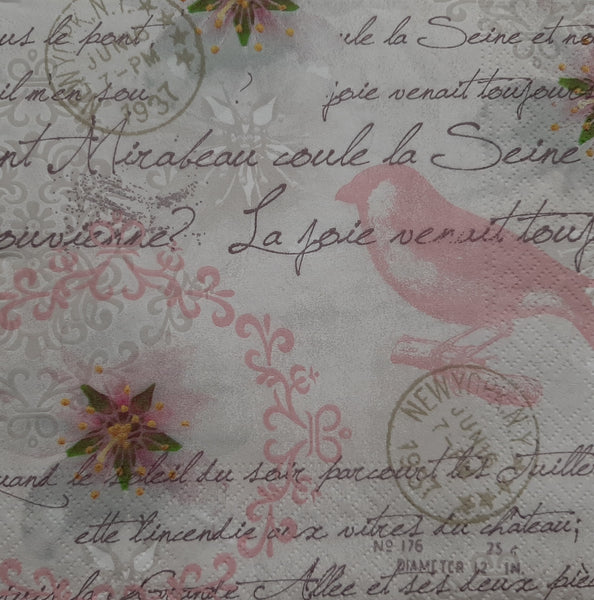 us le pont ule la Seine et no
il m'en sou ? joie venait toujours
nt Mirabeau coule la Seine
ouvienne? La joie venait touj
NEW YORK, N.Y.
JUN 6
7-PM
1937
Quand le soleil du soir parcourt les Tuiller
ette l'incendie aux vitres du château;
Nº 176 25
DIAMETER 12 IN.
la Grande Allée et ses deux piè